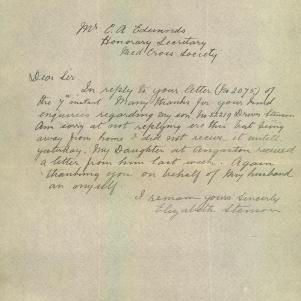 Mr E. A. Edmonds
Honorary Secretary
Red Cross Society
Dear Sir
In reply to your letter (No 2075) of
the 7th instant Many thanks for your kind
enquiries regarding my son No 52219 Driver Stenson
Am sorry at not replying ere this but being
away from home did not receive it until
yesterday. My Daughter at Angaston received
a letter from him last week. Again
thanking you on behalf of my husband
an myself.
I remain yours sincerely
Elizabeth Stenson